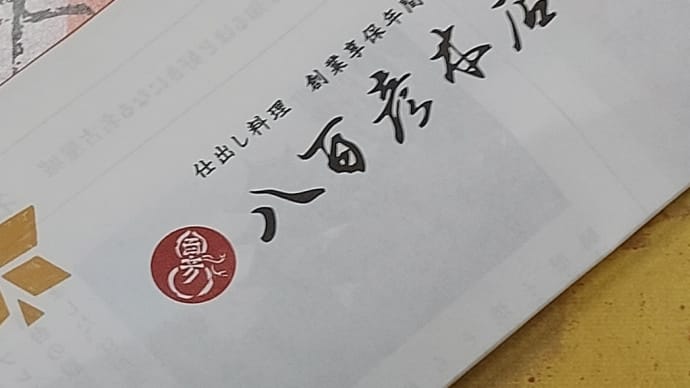 仕出し料理 創業享保年間
八百彦本店